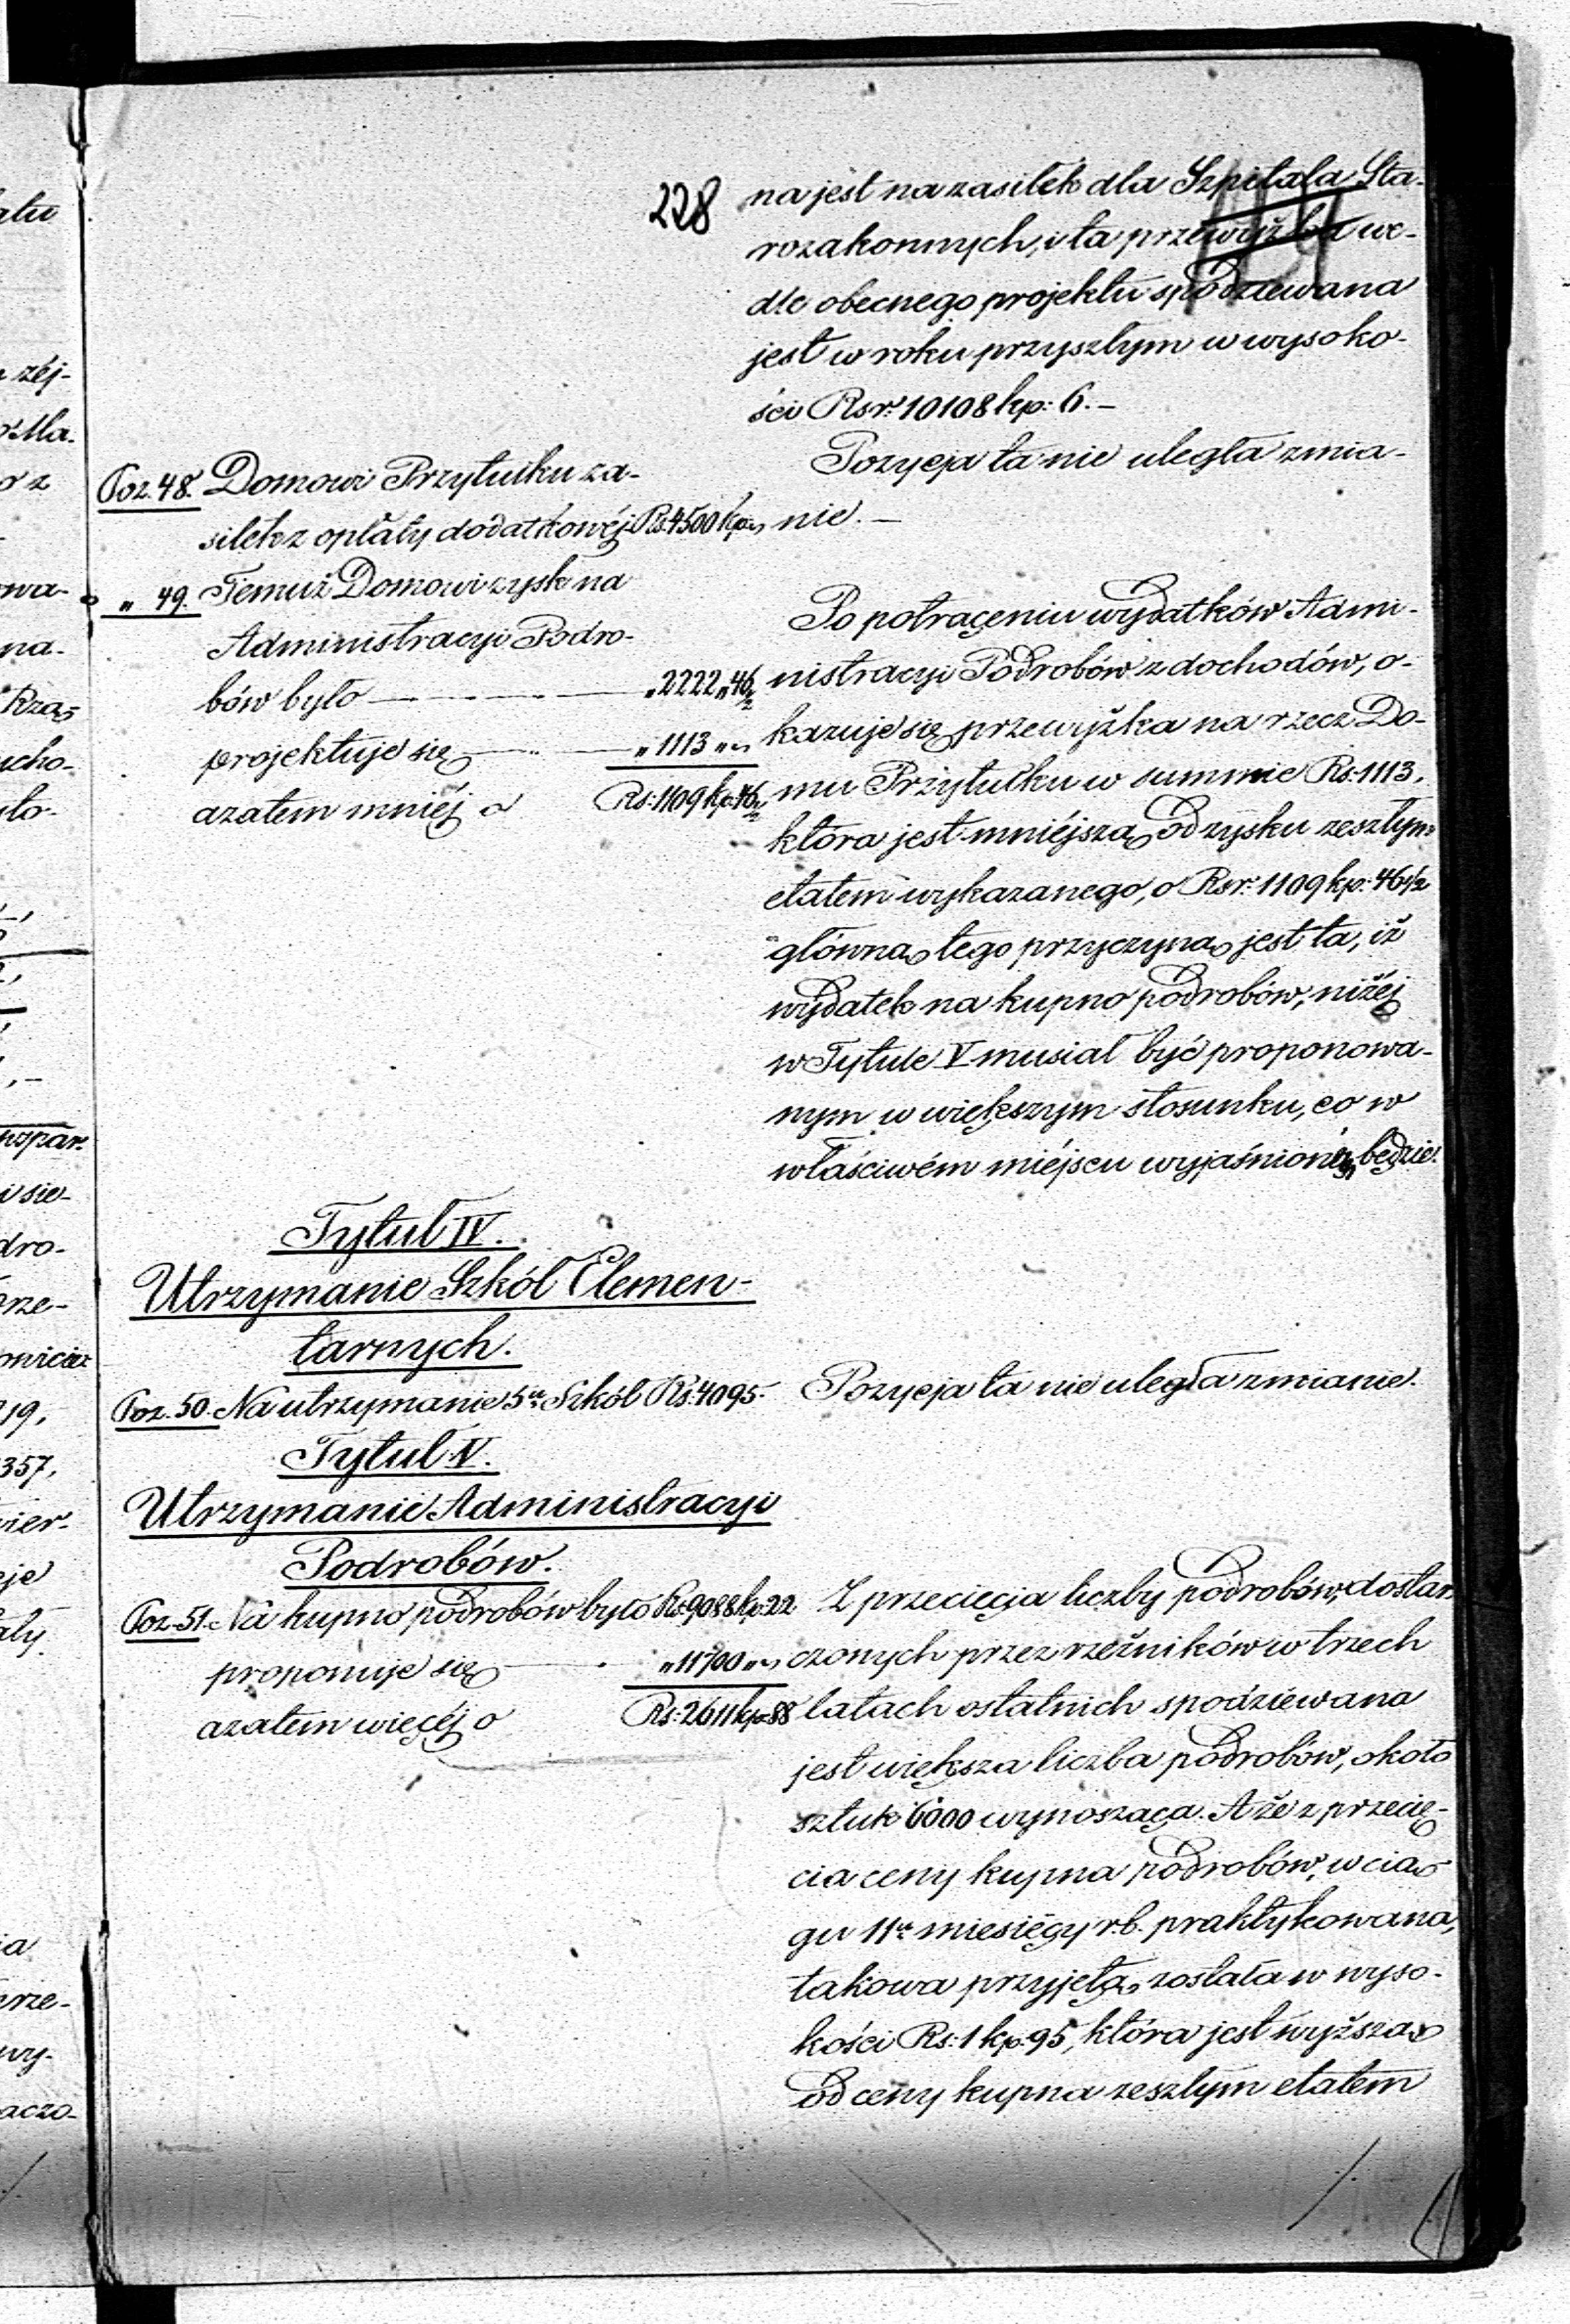 228
na jest na zasiłek dla Szpitala Sta-
rozakonnych, i ta przewyżka we-
dle obecnego projektu spodziewana
jest w roku przyszłym w wysoko-
ści Rsr: 10108 kp: 6.–
Poz. 48. Domowi Przytułku za-
siłek z opłaty dodatkowéj Rs: 4500 kp: „
Pozycja ta nie uległa zmia-
nie.–
„ 49. Temuż Domowi zysk na
Administracyi Podro-
bów było — „ 2222 „ 46½
projektuje się — „ 1113 „ „
azatem mniéj o Rs: 1109 kp: 46½
Po potrąceniu wydatków Admi-
nistracyi Podrobów z dochodów, o-
kazuje się przewyżka na rzecz Do-
mu Przytułku w summie Rs: 1113.
która jest mniéjszą od zysku zeszłym
etatem wykazanego, o Rsr: 1109 kp: 46½
główną tego przyczyną jest ta, iż
wydatek na kupno podrobów, niżéj
w Tytule V musiał być proponowa-
nym w większym stosunku, co w
właściwém miéjscu wyjaśnioném będzie.
Tytuł IV.
Utrzymanie Szkół Elemen-
tarnych.
Poz. 50. Na utrzymanie 5ciu Szkół Rs: 4095.
Pozycja ta nie uległa zmianie.
Tytuł V.
Utrzymanie Administracyi
Podrobów.
Poz. 51. Na kupno podrobów było Rs: 9088 kp: 22
proponuje się — „ 11700 „ „
azatem więcéj o Rs: 2611 kp: 88
Z przecięcia liczby podrobów, dostar-
czonych przez rzeźników w trzech
latach ostatnich spodziewana
jest większa liczba podrobów, około
sztuk 6000 wynosząca. A że z przecię-
cia ceny kupna podrobów, w cią-
gu 11tu miesięcy r.b. praktykowana,
takowa przyjętą została w wyso-
kości Rs: 1 kp: 95, która jest wyższą
od ceny kupna zeszłym etatem